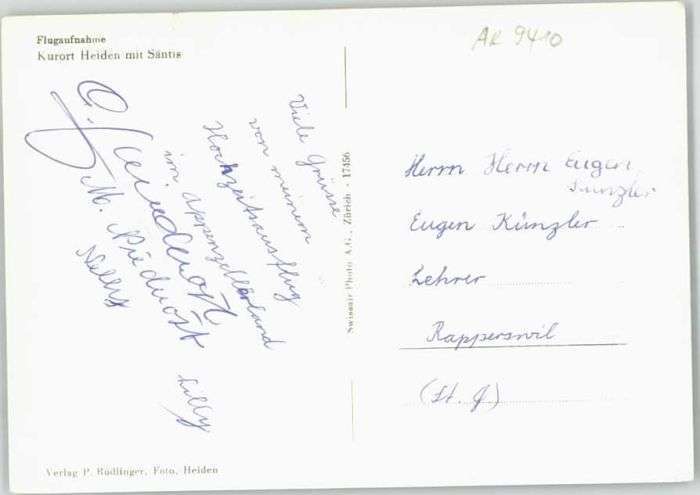 Flugaufnahme
Kurort Heiden mit Säntis
AR 9410
Viele Grüsse
von meinem
Hochzeitsausflug
im Appenzellerland
M. Niederost
Nelly
Lilly
Swissair Photo A.G., Zürich - 17456
Herrn Herrn Eugen
Künzler
Eugen Künzler
Lehrer
Rapperswil
(St. G)
Verlag P. Rüdlinger, Foto, Heiden